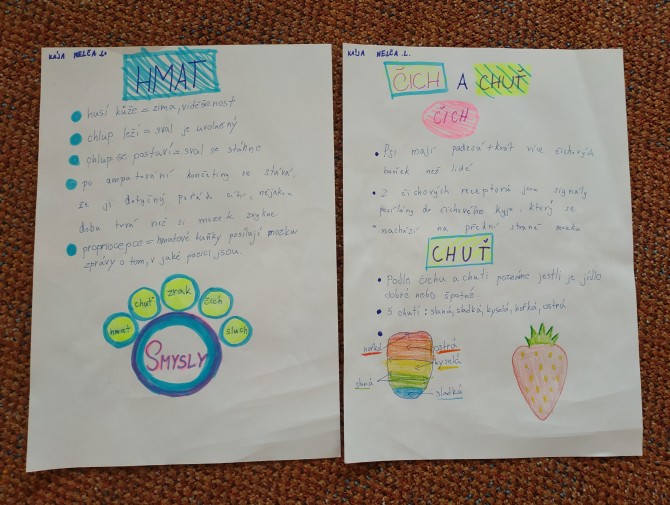 KÁJA NELČA L.
HMAT
husí kůže = zima, vyděšenost
chlup leží = sval je uvolněný
chlup se postaví = sval se stáhne
po amputování končetiny se stává,
že ji dotyčný pořád cítí, nějakou
dobu trvá než si mozek zvykne
propriocepce = hmatové buňky posílají mozku
zprávy o tom, v jaké pozici jsou.
hmat
chuť
zrak
čich
sluch
SMYSLY
KÁJA NELČA .L.
ČICH A CHUŤ
ČICH
Psi mají padesátkrát více čichových
buněk než lidé
Z čichových receptorů jsou signály
posílány do čichového kyje, který se
nachází na přední straně mozku
CHUŤ
Podle čichu a chuti poznáme jestli je jídlo
dobré nebo špatné.
5 chutí: slaná, sladká, kyselá, hořká, ostrá
hořká
ostrá
kyselá
slaná
sladká